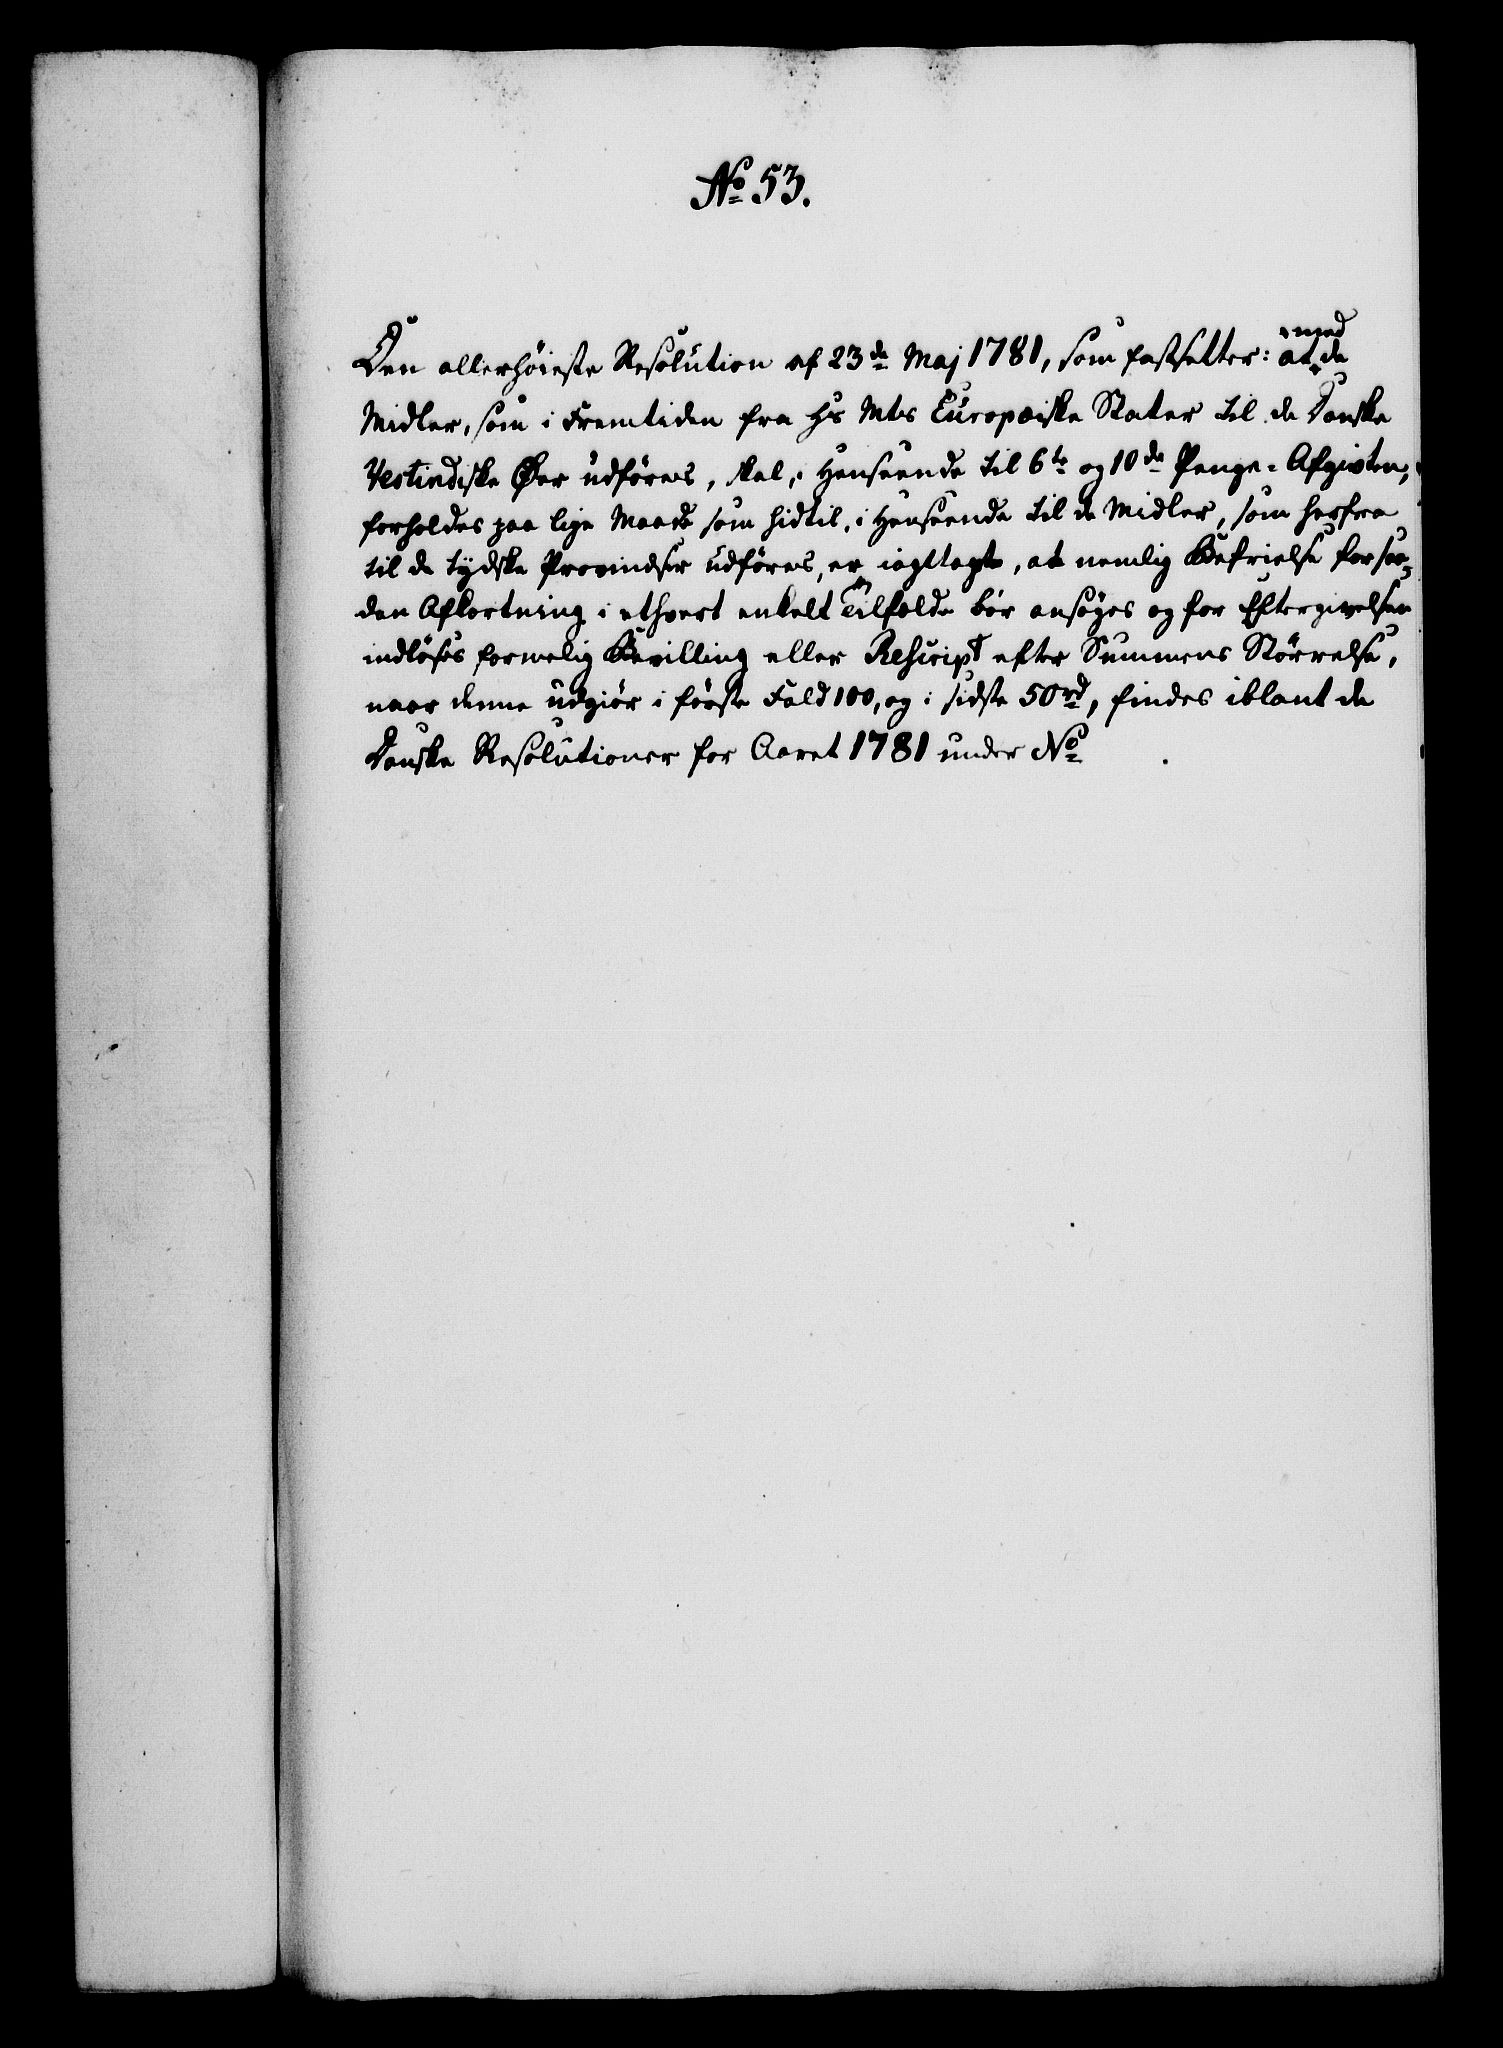 No 53.
med
Den allerhöieste Resolution af 23de Maj 1781, som fastsetter: at de
Midler, som i Fremtiden fra Hs Mts Europæiske Stater til de Danske
Vestindiske Øer udföres, skal, i Henseende til 6te og 10de Penge-Afgivten,
forholdes paa lige Maade som hidtil, i Henseende til de Midler, som herfra
til de tydske Provindser udföres, er iagttagt, at nemlig Befrielse for saa-
dan Afkortning i ethvert enkelt Tilfælde bör ansöges og for Eftergivelsen
indlöses formelig Bevilling eller Rescript efter Summens Störrelse,
naar denne udgiör i förste Fald 100, og i sidste 50 rd, findes iblant de
Danske Resolutioner for Aaret 1781 under No .